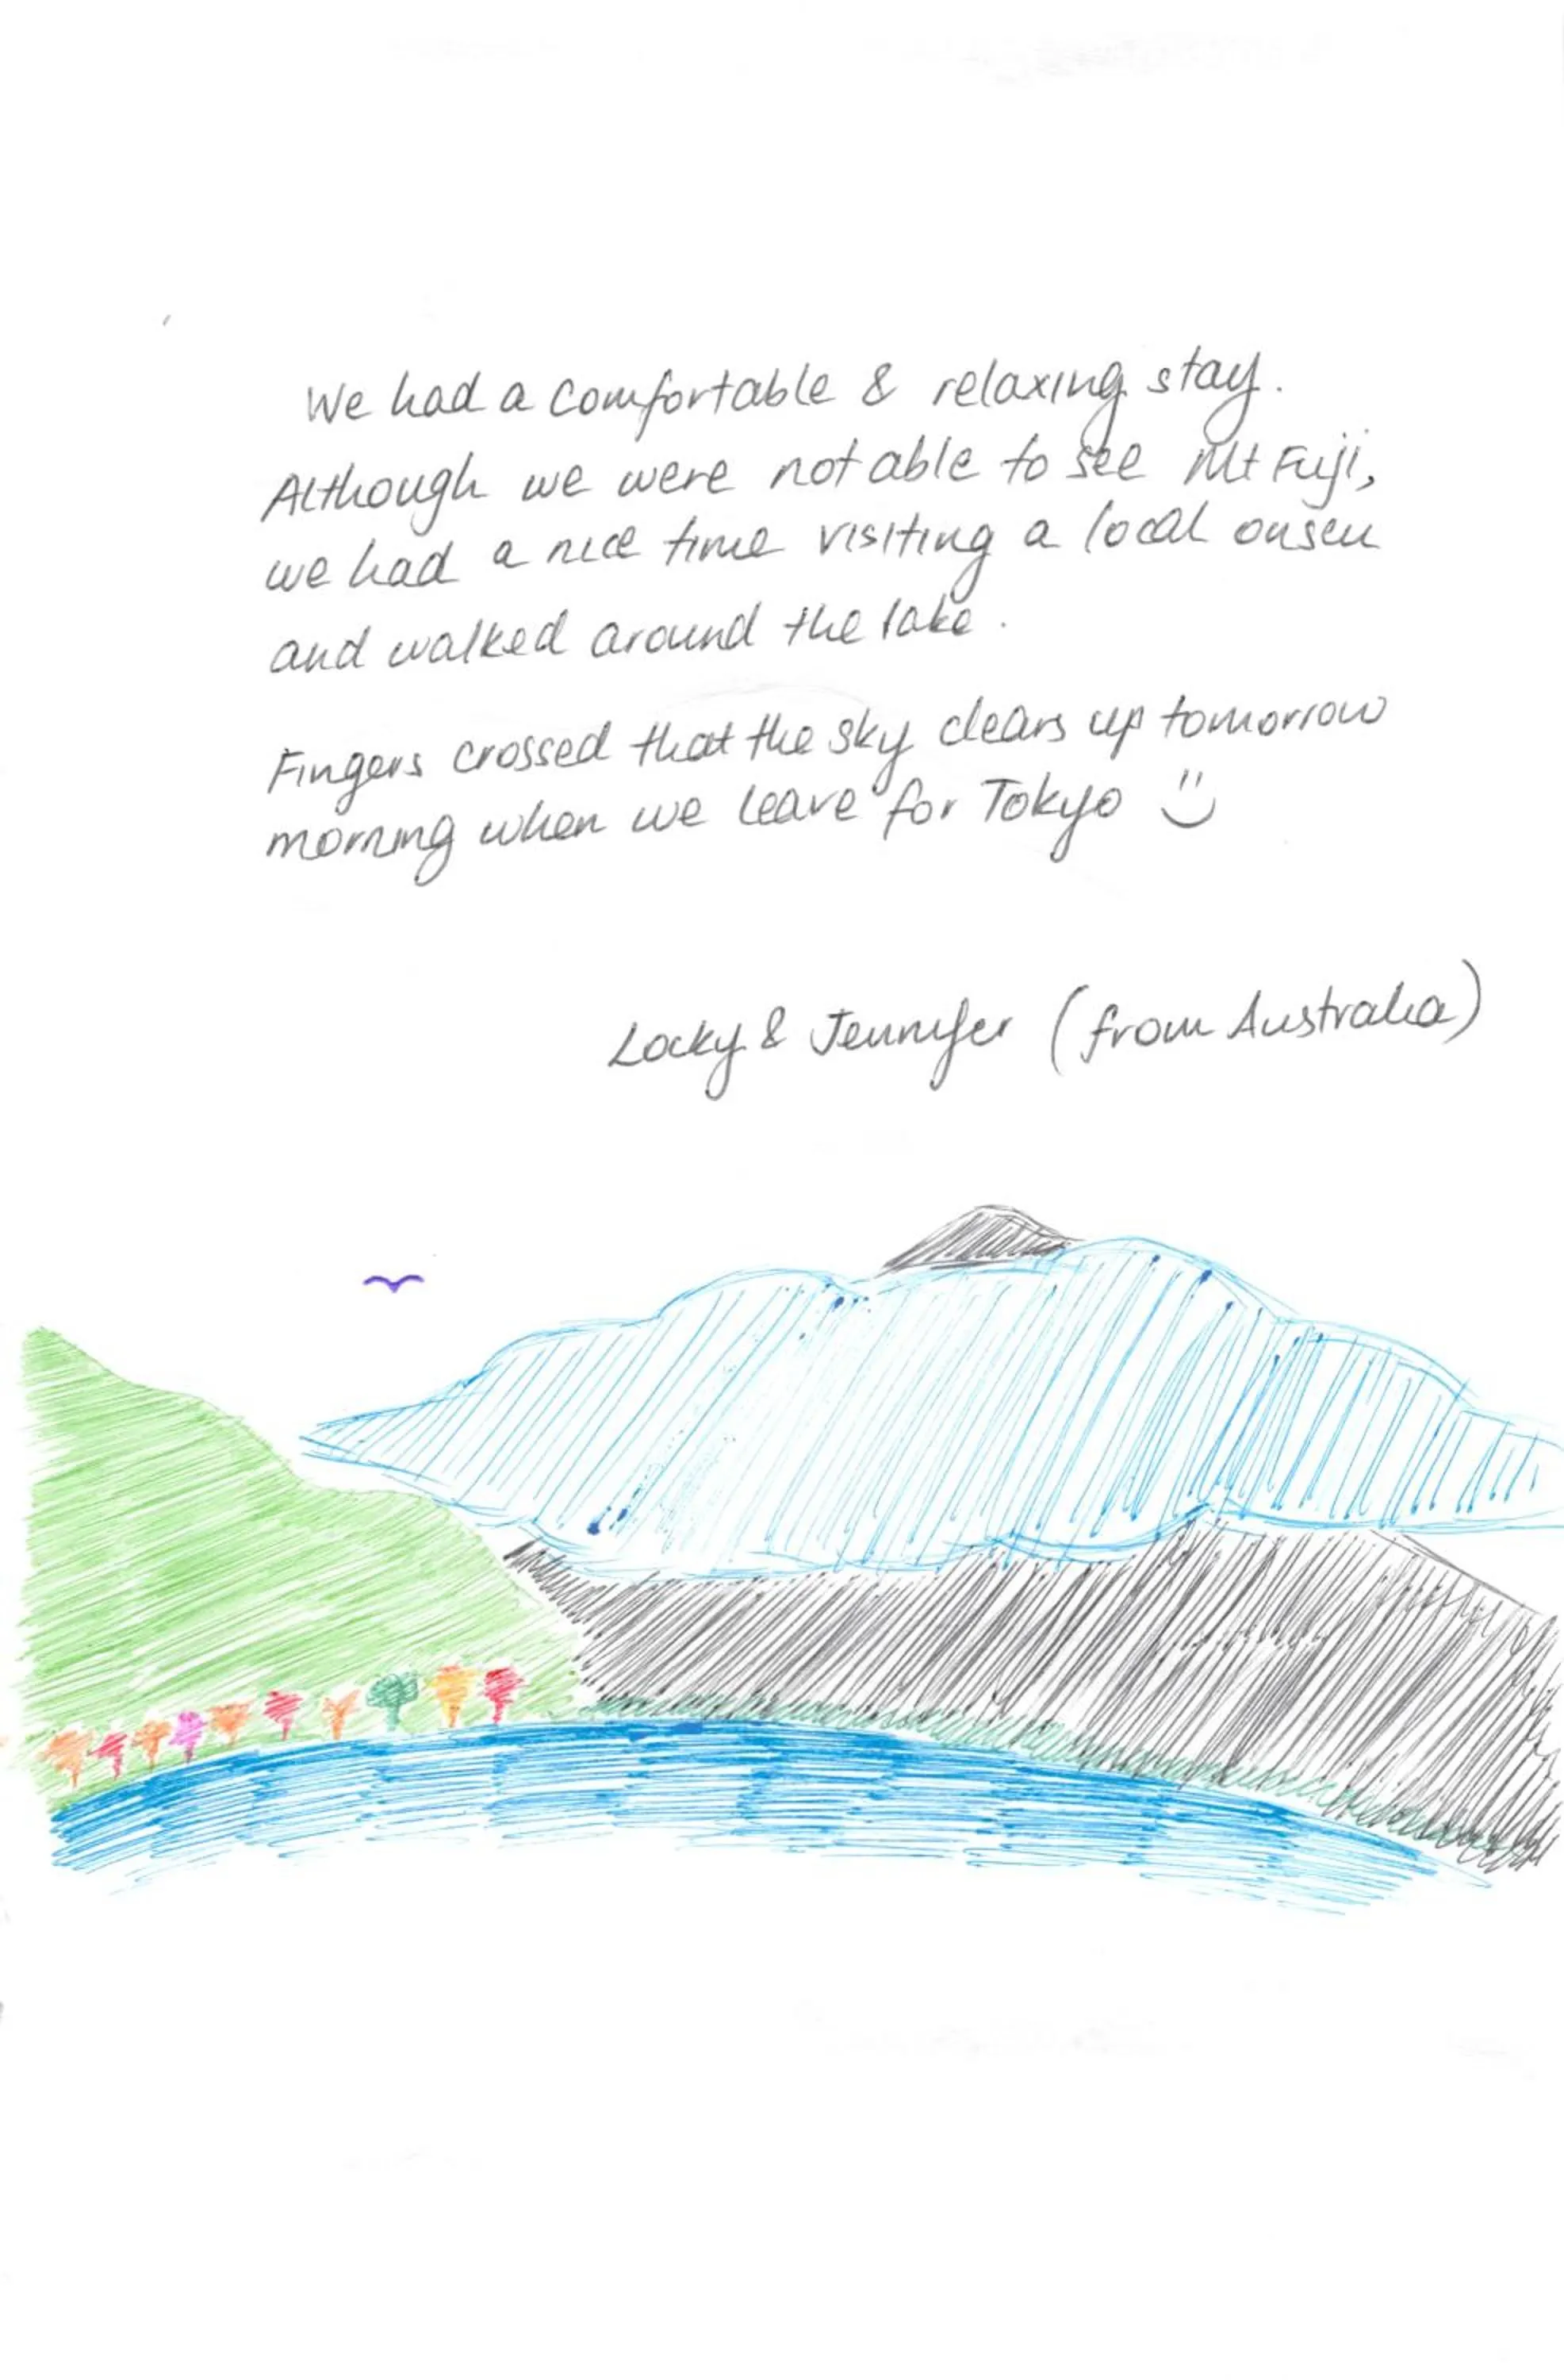 We had a comfortable & relaxing stay.
Although we were not able to see Mt Fuji,
we had a nice time visiting a local onsen
and walked around the lake.
Fingers crossed that the sky clears up tomorrow
morning when we leave for Tokyo
Locky & Jennifer (from Australia)